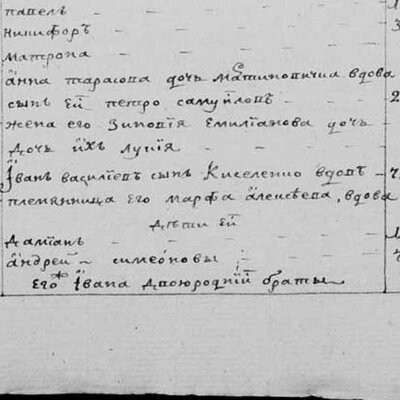 павелъ 1
никифоръ 3
матрона
анна тарасова дочь мартиновичка вдова
сынъ ей петро самуйловъ 2
жена его зиновія емиліанова дочь
дочь ихъ лукія
Іванъ василіевъ сынъ Киселенко вдовъ 4
племянница его марфа алексѣева, вдова
дѣти ей
даміанъ 1
андрей симеоновы
его Івана двоюродній братъ